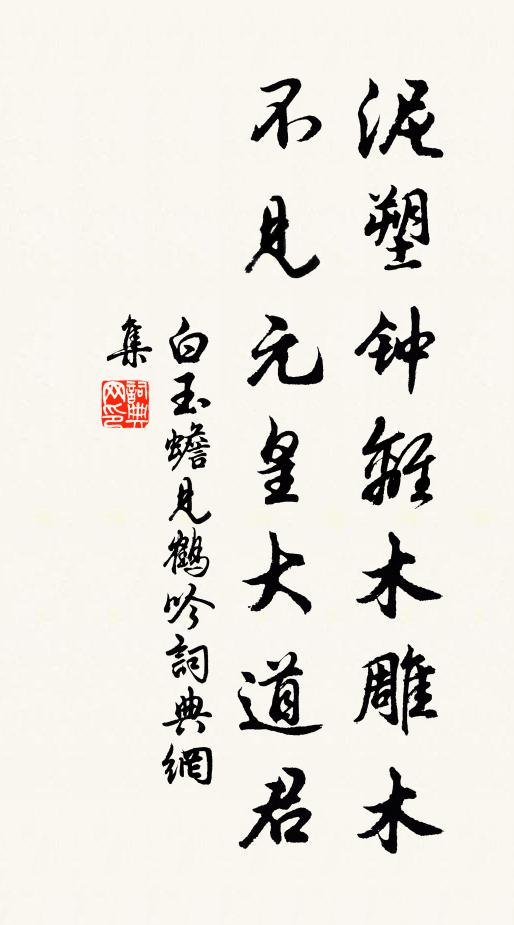 泥塑钟離木雕木
不見元皇大道君
白玉蟾見鶴吟詞典網
集
詞典
网印